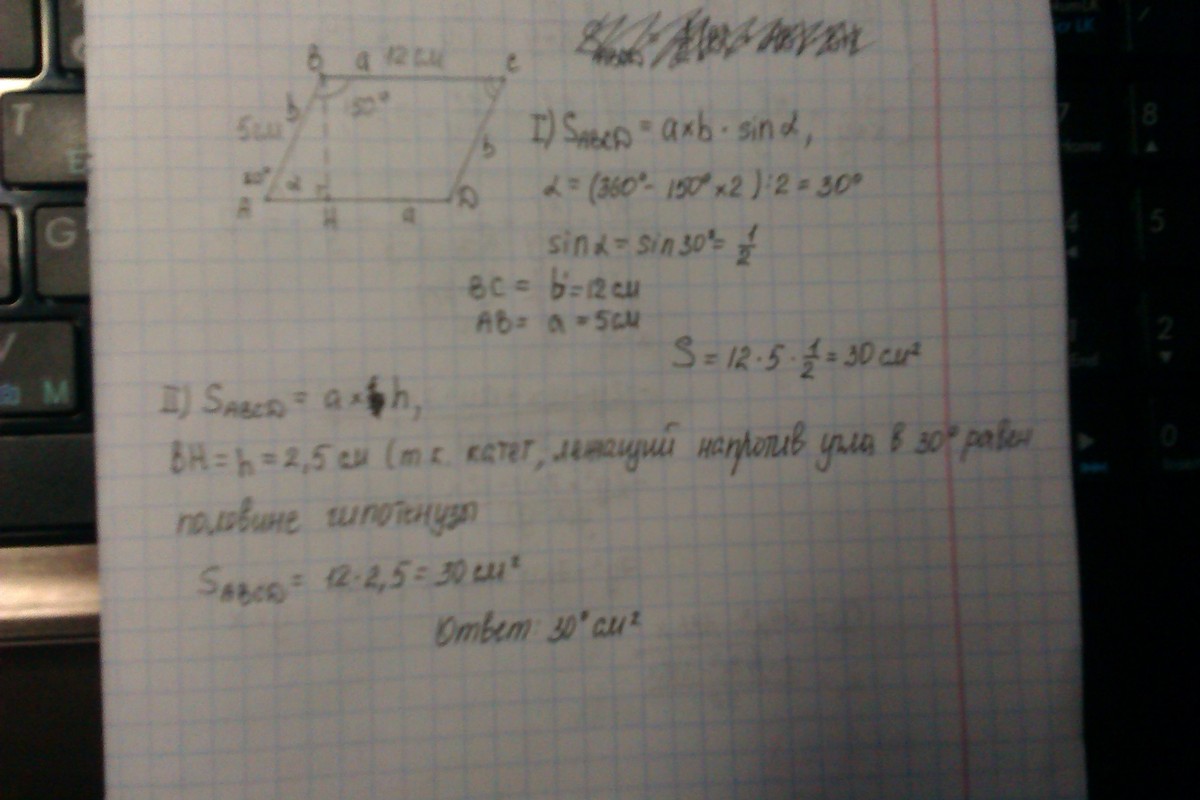 B a 12 см C
b 150°
5 см b
30° α
A H a D
I) S ABCD = a×b · sin α,
α = (360° - 150° × 2) : 2 = 30°
sin α = sin 30° = 1/2
BC = b = 12 см
AB = a = 5 см
S = 12 · 5 · 1/2 = 30 см²
II) S ABCD = a × h,
BH = h = 2,5 см (т к. катет, лежащий напротів угла в 30° равен
половине гипотенузы
S ABCD = 12 · 2,5 = 30 см²
Ответ: 30° см²
T
G
V
M
7
8
4
5
1
2
0